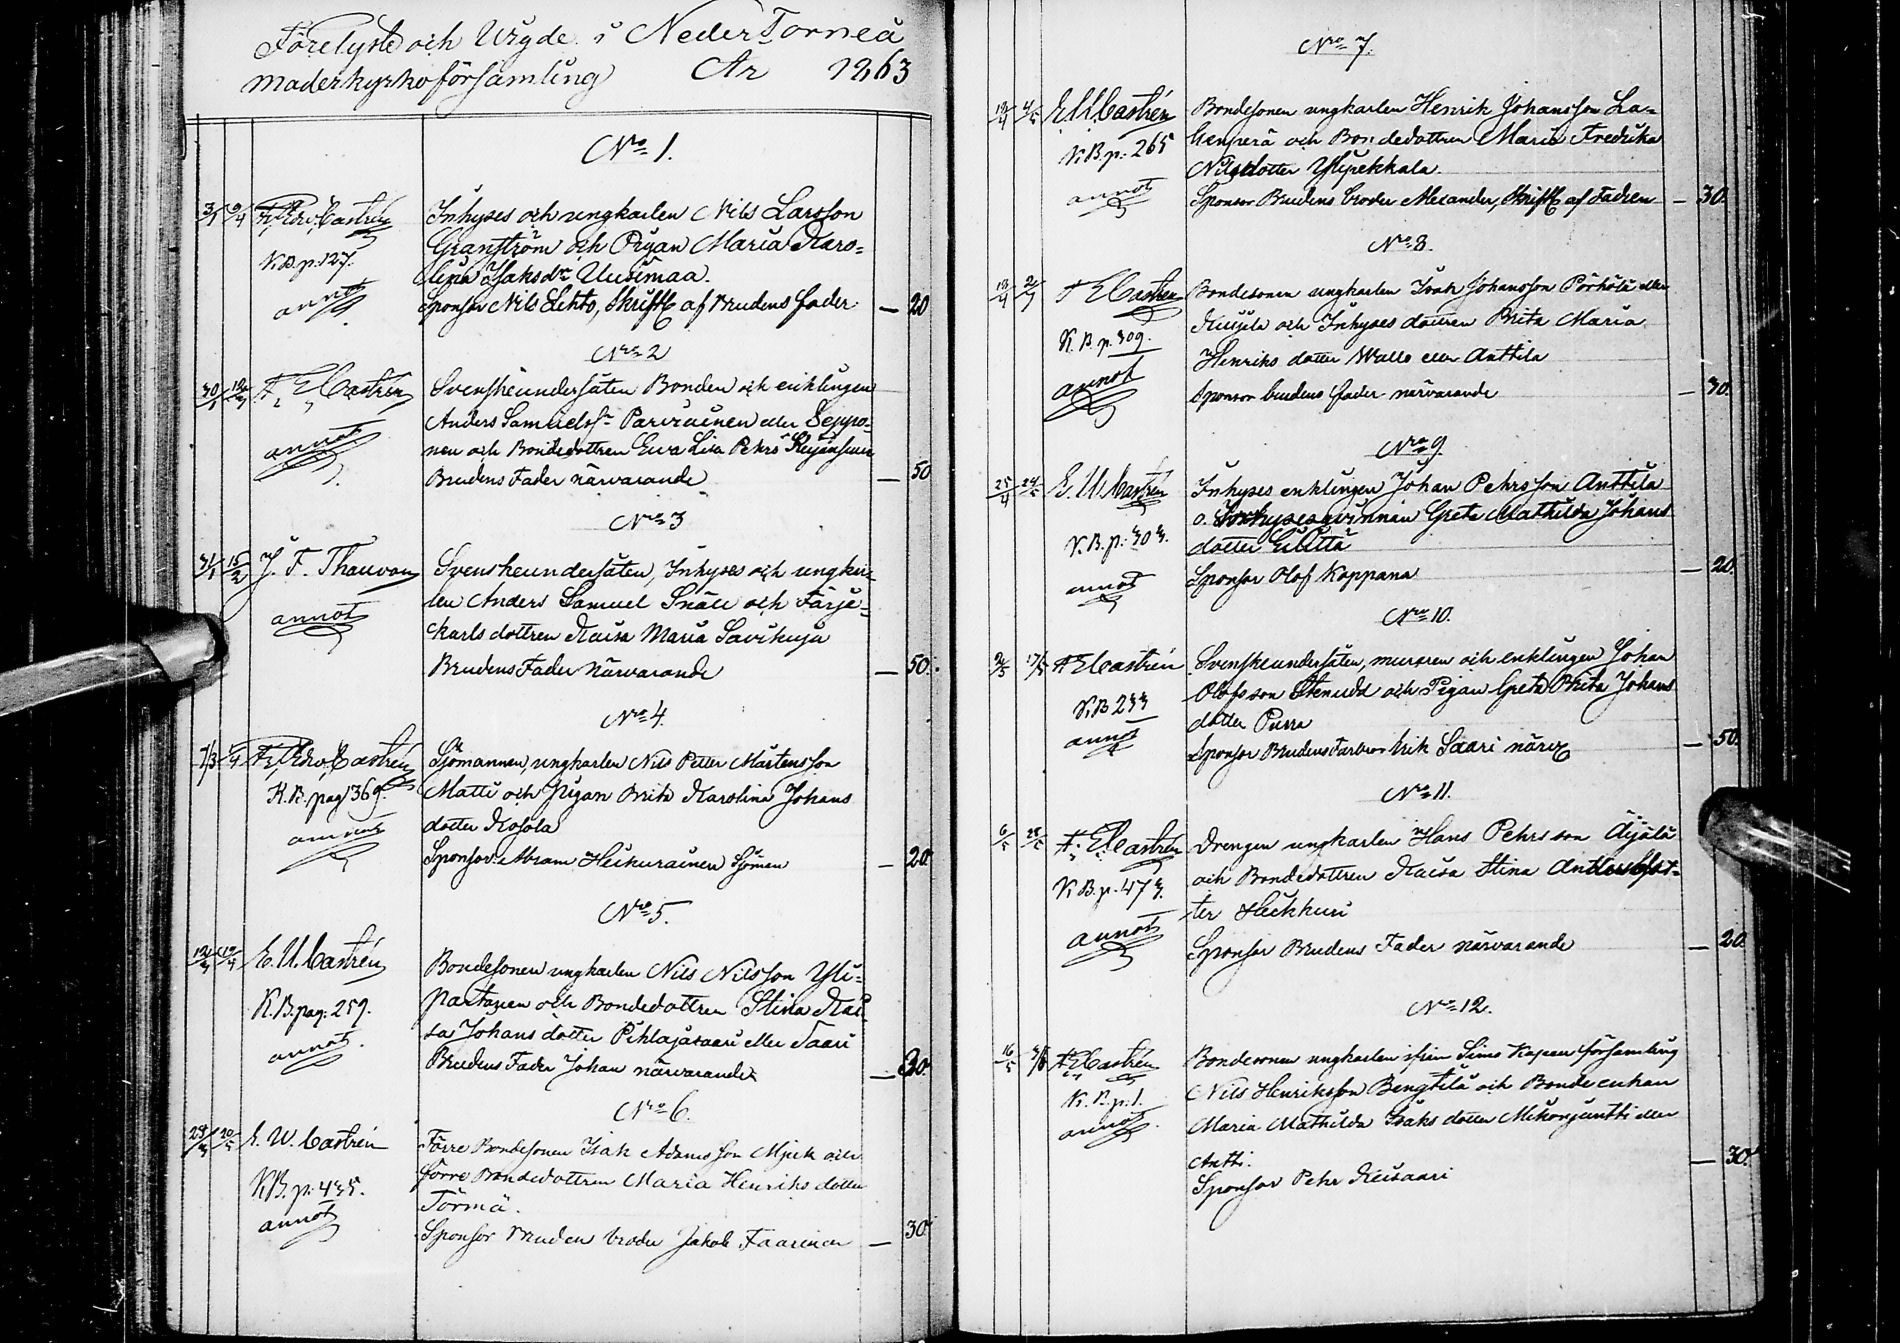 Förelyste och Vigde i Neder Torneå
Moderkyrkoförsamling År 1863
No 1.
3/1 9/4 F. Edv. Castrén Inhyses och ungkarlen Nils Larsson
Granström och Pigan Maria Karo-
K.B.p. 127. lina Isaksdr Uusimaa.
annot Sponsor Nils Lehto, Skriftl af Brudens fader — 20
No 2
30/1 F. E. Castrén Svenskeundersåten Bonden och enklingen
Anders Samuelss Parviainen eller Seppo-
annot nen och Bondedottren Eva Lisa Pehrs
Brudens Fader närvarande — 50
No 3
31/1 15/2 J. F. Thauvon Svenskeundersåten, Inhyses och ungkar-
len Anders Samuel Snäll och Färje-
annot karls dottren Kaisa Maria Savikuja
Brudens Fader Närvarande — 50.
No 4.
7/3 F. Edv. Castrén Sjömannen, ungkarlen Nils Petter Mårtensson
K.B. pag 369. Matti och Pigan Brita Karolina Johans
annot dotter Rosola
Sponsor Abram Heikurainen Sjöman — 20
No 5.
12/3 12/4 E. U. Castrén Bondesonen ungkarlen Nils Nilsson Yli-
K.B. pag: 259. partanen och Bondedottren Stina Kai-
annot. sa Johans dotter Pihlajasaari eller Saari
Brudens Fader Johan närvarande — 30.
No 6.
29/3 20/5 E. U. Castrén Förre Bondesonen Isak Adamsson Mjuk och
K.B. p: 435. förre Bondedottren Maria Henriks dotter
annot Törmä.
Sponsor Bruden broder Jakob — 30
No 7.
12/4 4/5 E. U. Castrén Bondesonen ungkarlen Henrik Johansson La-
K.B.p: 265 henperä och Bondedottren Maria Fredrika
Nilsdotter Ylipekkala.
annot Sponsor Brudens broder Alexander, Skriftl af Fadren — 30.
No 8.
18/4 F. E. Castrén Bondesonen ungkarlen Isak Johansson Pörhölä eller
K.B.p. 309. och Inhyses dottren Brita Maria
Henriks dotter Wallo eller Anttila
annot Sponsor brudens fader närvarande — 30.
No 9.
25/4 24/5 E. U. Castrén Inhyses enklingen Johan Pehrsson Anttila
o. Inhysesqvinnan Greta Mathilda Johans
K.B.p: 303. dotter
annot Sponsor Olof Koppana — 20.
No 10.
2/5 17/5 F E Castrén Svenskeundersåten, muraren och enklingen Johan
Olofsson Stenudd och Pigan Greta Brita Johans
K.B 233 dotter Purra
annot Sponsor Brudens Farbror Erik Saari närv — 50.
No 11.
6/5 25/5 F. E. Castrén Drengen ungkarlen Hans Pehrsson Äijälä
K.B.p. 473. och Bondedottren Kaisa Stina Andersdot-
ter Heikkuri
annot Sponsor Brudens Fader närvarande — 20.
No 12.
16/5 F. E. Castrén Bondesonen ungkarlen ifrån Simo Kapell församling
K.B.p. 1. Nils Henriksson Bengtilä och Bonde enkan
annot. Maria Mathilda Isaks dotter eller
Antti.
Sponsor Pehr Kuisaari — 30.